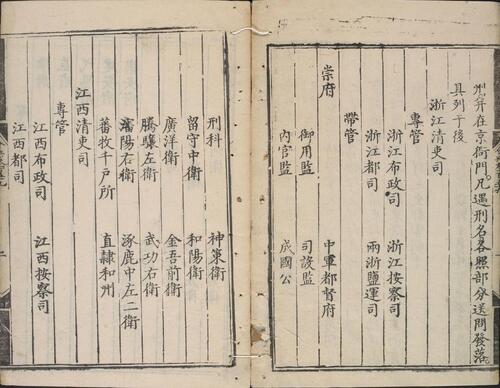 州并在京衙門凡遇刑名各照部分送問發落
具列于後
浙江清吏司
專管
浙江布政司 浙江按察司
浙江都司 兩浙鹽運司
帶管
崇府 中軍都督府
御用監 司設監
內官監 成國公
刑科 神策衛
留守中衛 和陽衛
廣洋衛 金吾前衛
騰驤左衛 武功右衛
瀋陽右衛 涿鹿中左二衛
蕃牧千戶所 直隸和州
江西清吏司
專管
江西布政司 江西按察司
江西都司